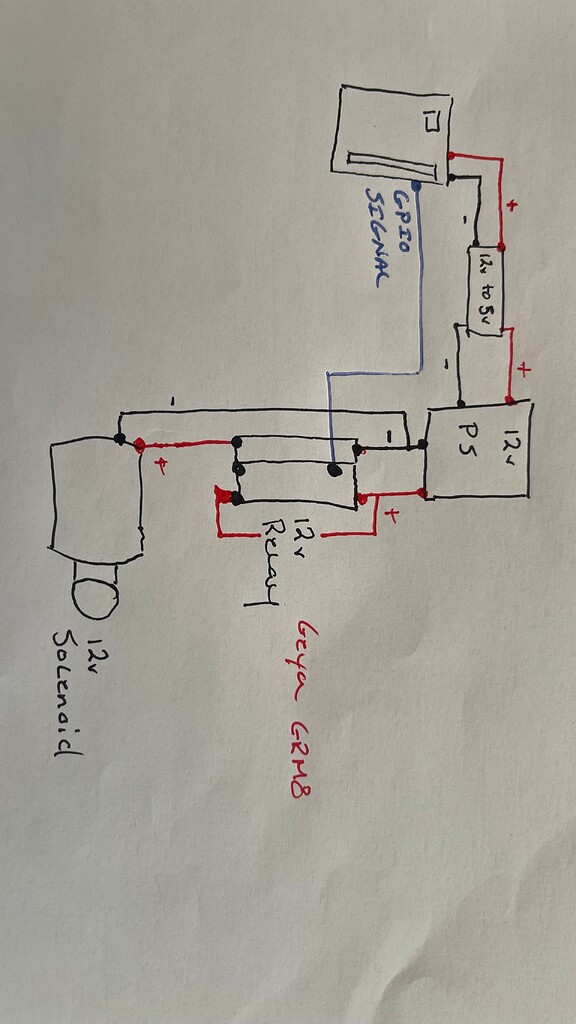 GPIO
SIGNAL
+
-
12v to 5v
+
-
12v
PS
-
-
+
+
12v
Relay
Geya GRM8
12v
Solenoid